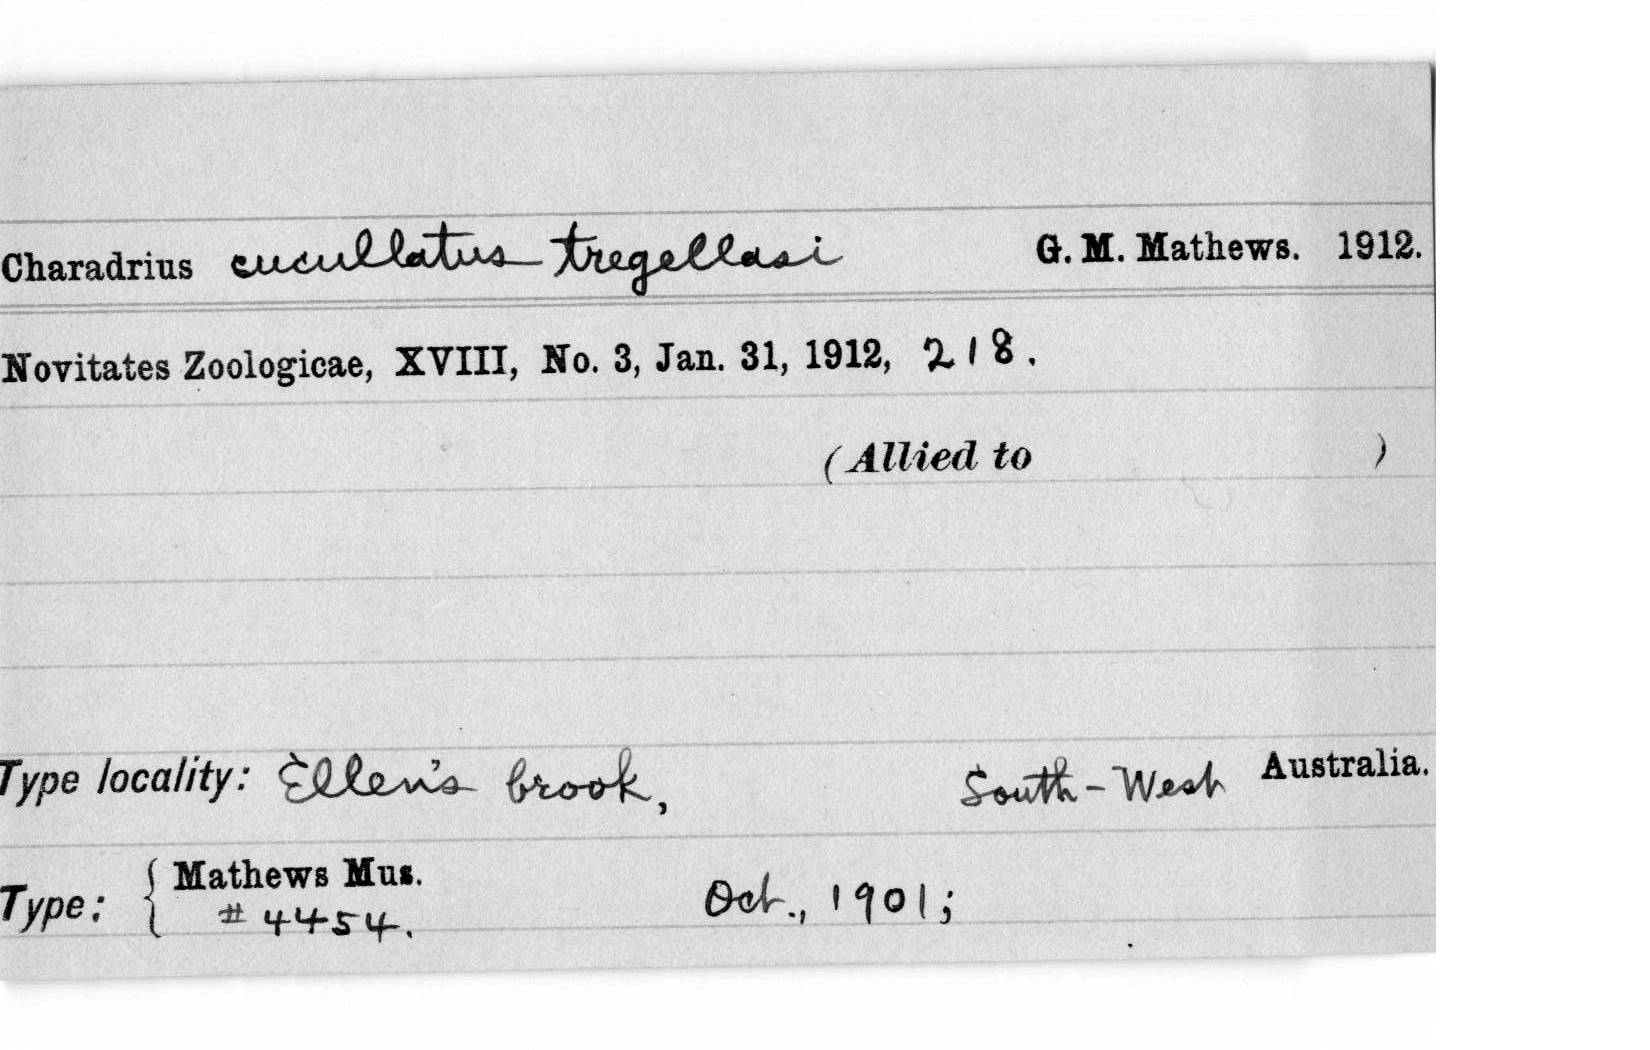 Charadrius cucullatus tregellasi G. M. Mathews. 1912.
Novitates Zoologicae, XVIII, No. 3, Jan. 31, 1912, 218.
(Allied to )
Type locality: Ellen's brook, South-West Australia.
Type: { Mathews Mus.
# 4454. Oct., 1901;